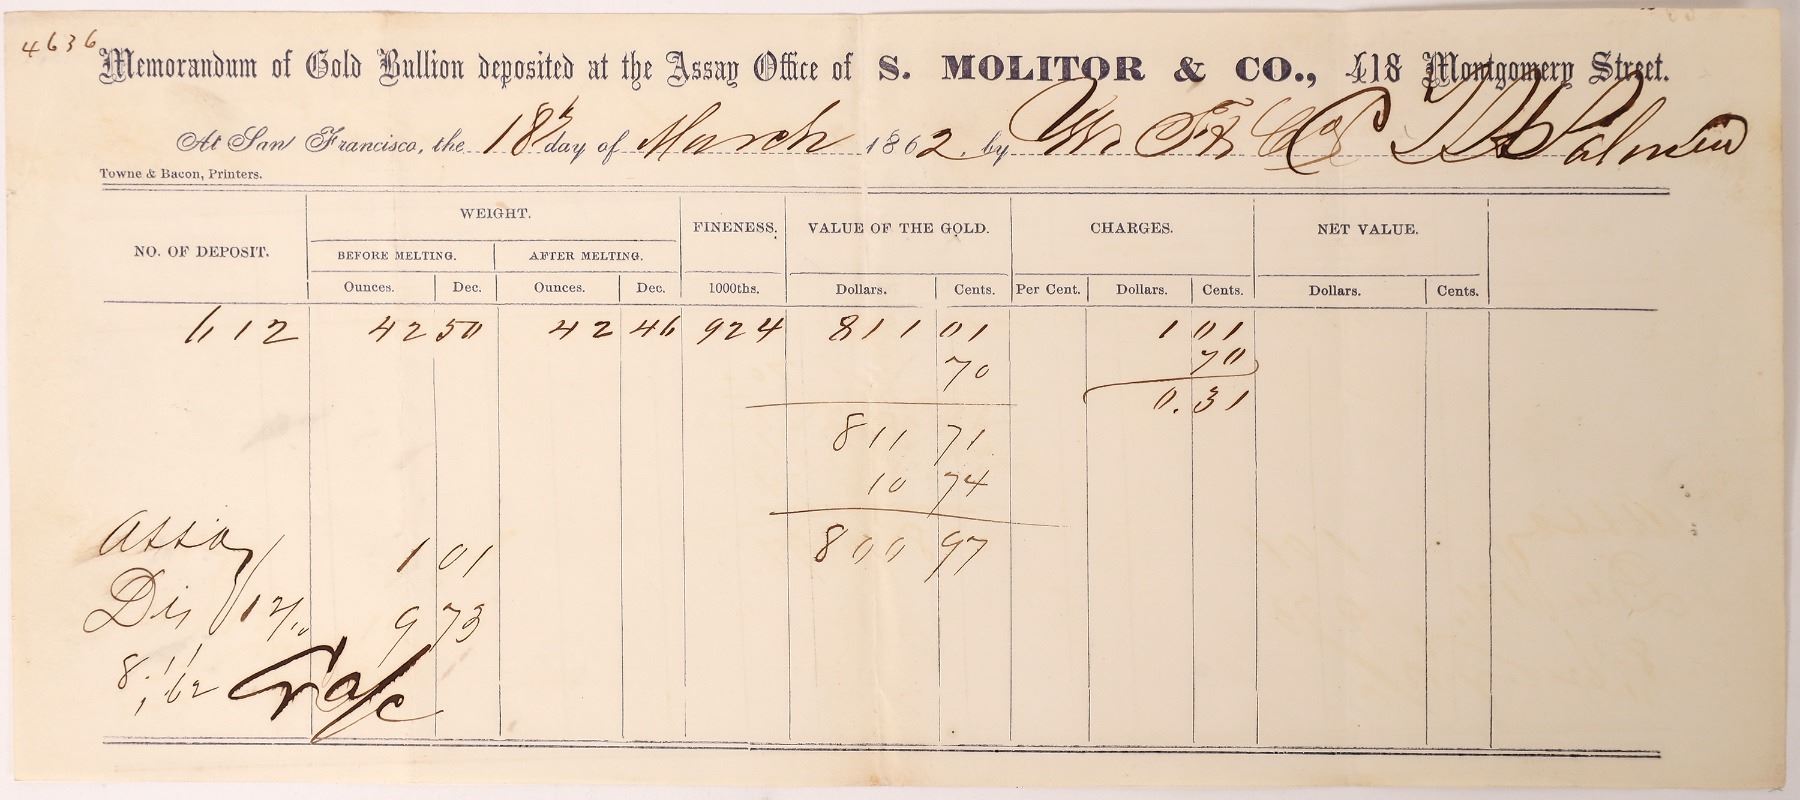 4636
Memorandum of Gold Bullion deposited at the Assay Office of S. MOLITOR & CO., 418 Montgomery Street.
At San Francisco, the 18th day of March 1862. by
Towne & Bacon, Printers.
NO. OF DEPOSIT. WEIGHT. FINENESS. VALUE OF THE GOLD. CHARGES. NET VALUE.
BEFORE MELTING. AFTER MELTING.
Ounces. Dec. Ounces. Dec. 1000ths. Dollars. Cents. Per Cent. Dollars. Cents. Dollars. Cents.
612 42 50 42 46 924 811 01 1 01
70 70
0.31
811 71
10 74
800 97
Assay 1 01
Dis 9 73